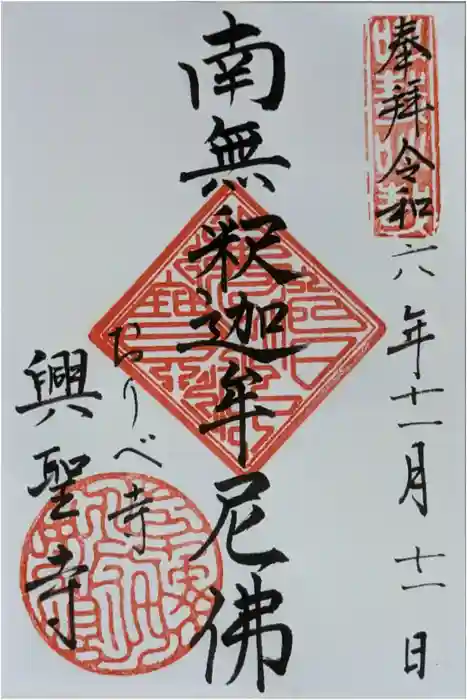 奉拝令和六年十一月十一日
南無釈迦牟尼佛
おりべ寺
興聖寺